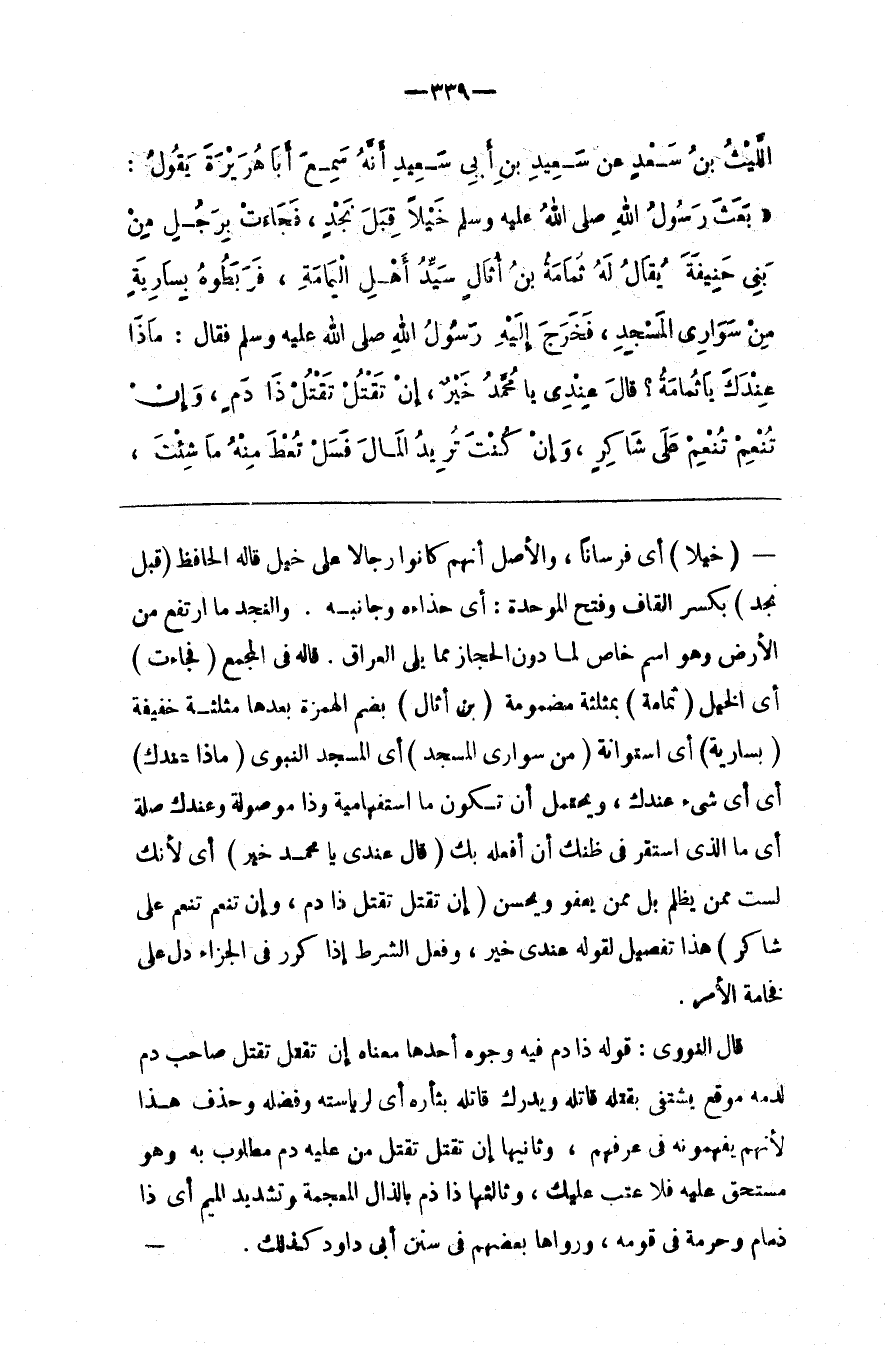 —٣٣٩—
اللَّيْثُ بنُ سَعْدٍ عن سَعِيدِ بنِ أَبِي سَعِيدٍ أنَّهُ سَمِعَ أَبَا هُرَيْرَةَ يَقُولُ :
« بَعَثَ رَسُولُ اللهِ صلى اللهُ عليه وسلم خَيْلاً قِبَلَ نَجْدٍ ، فَجَاءَتْ بِرَجُلٍ مِنْ
بَنِي حَنِيفَةَ يُقَالُ لَهُ ثُمَامَةُ بنُ أُثَالٍ سَيِّدُ أَهْلِ الْيَمَامَةِ ، فَرَبَطُوهُ بِسَارِيَةٍ
مِنْ سَوَارِى المَسْجِدِ ، فَخَرَجَ إِلَيْهِ رَسُولُ اللهِ صلى الله عليه وسلم فقال : مَاذَا
عِنْدَكَ يَاثُمَامَةُ ؟ قالَ عِنْدِى يا مُحَمَّدُ خَيْرٌ ، إنْ تَقْتُلْ تَقْتُلْ ذَا دَمٍ ، وَإِنْ
تُنْعِمْ تُنْعِمْ عَلَى شَاكِرٍ ، وَإنْ كُنْتَ تُرِيدُ المَالَ فَسَلْ تُعْطَ مِنْهُ ما شِئْتَ ،
— ( خيلا ) أى فرساناً ، والأصل أنهم كانوا رجالا على خيل قاله الحافظ (قبل
نجد ) بكسر القاف وفتح الموحدة : أى حذاءه وجانبه . والنجد ما ارتفع من
الأرض وهو اسم خاص لما دون الحجاز مما يلى العراق . قاله فى المجمع ( فجاءت )
أى الخيل ( ثمامة ) بمثلثة مضمومة ( بن أثال ) بضم الهمزة بعدها مثلثة خفيفة
( بسارية) أى استوانة ( من سوارى المسجد ) أى المسجد النبوى ( ماذا عندك)
أى أى شىء عندك ، ويحتمل أن تكون ما استفهامية وذا موصولة وعندك صلة
أى ما الذى استقر فى ظنك أن أفعله بك ( قال عندى يا محمد خير ) أى لأنك
لست ممن يظلم بل ممن يعفو ويحسن ( إن تقتل تقتل ذا دم ، وإن تنعم تنعم على
شاكر ) هذا تفصيل لقوله عندى خير ، وفعل الشرط إذا كرر فى الجزاء دل على
فخامة الأمر .
قال النووى : قوله ذا دم فيه وجوه أحدها معناه إن تقتل تقتل صاحب دم
لدمه موقع يشتفى بقتله قاتله ويدرك قاتله بثأره أى لرياسته وفضله وحذف هذا
لأنهم يفهمونه فى عرفهم ، وثانيها إن تقتل تقتل من عليه دم مطلوب به وهو
مستحق عليه فلا عتب عليك ، وثالثها ذا ذم بالذال المعجمة وتشديد الميم أى ذا
ذمام وحرمة فى قومه ، ورواها بعضهم فى سنن أبى داود كذلك . —